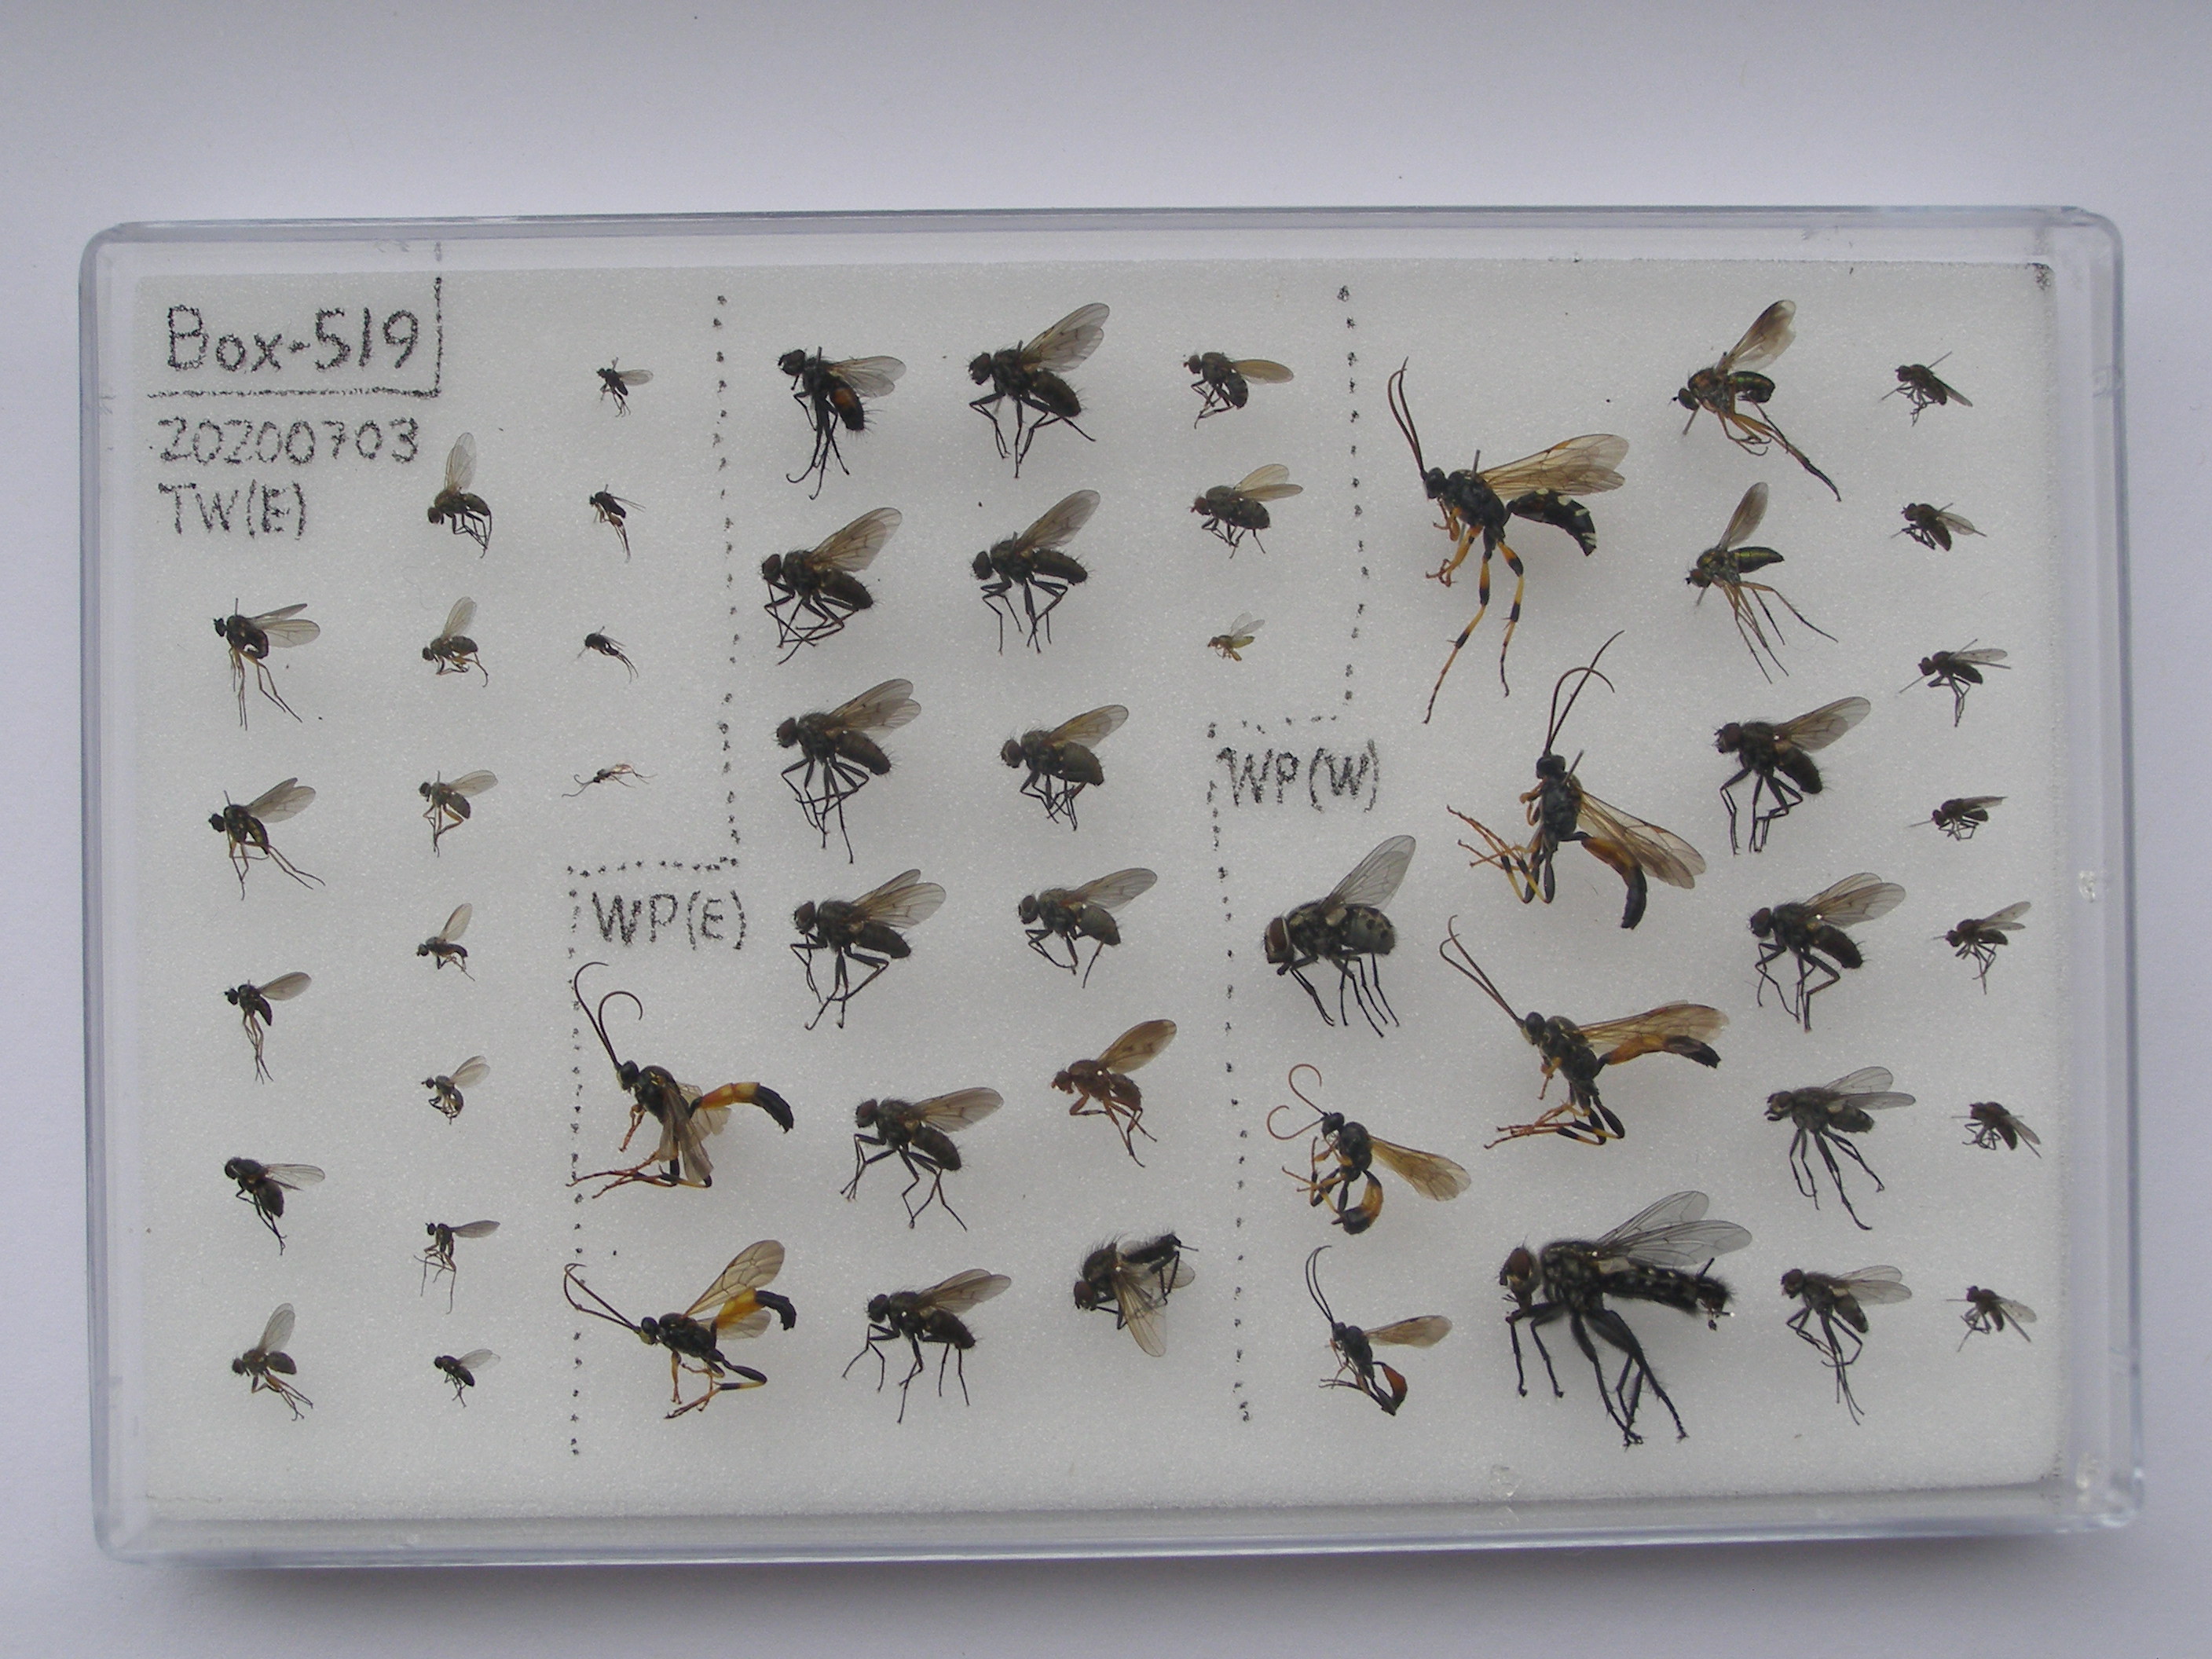 Box-519
20200703
TW(E)
WP(E)
WP(W)